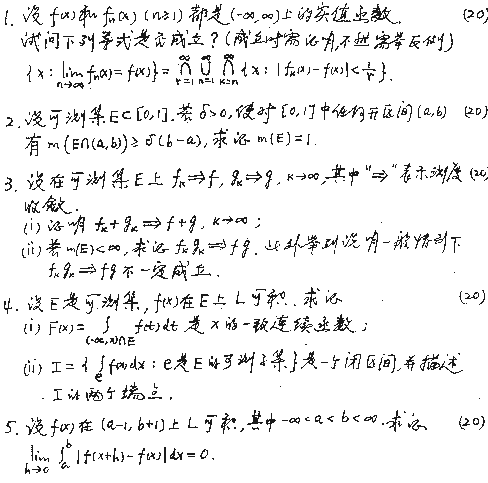 1. 设 f(x) 和 fₙ(x) (n≥1) 都是 (-∞,∞) 上的实值函数. (20)
试问下列等式是否成立? (成立时需证明, 不然需举反例)
{x: lim_{n→∞} fₙ(x) = f(x)} = ⋂_{r=1}^∞ ⋃_{n=1}^∞ ⋂_{k=n}^∞ {x: |f_k(x) - f(x)| < 1/r}.
2. 设可测集 E⊂[0,1]. 若 δ>0, 使对 [0,1] 中任何开区间 (a,b) (20)
有 m(E∩(a,b)) ≥ δ(b-a), 求证 m(E)=1.
3. 设在可测集 E 上 f_k⇒f, g_k⇒g, k→∞, 其中 "⇒" 表示测度 (20)
收敛.
(i) 证明 f_k+g_k ⇒ f+g, k→∞;
(ii) 若 m(E)<∞, 求证 f_k g_k ⇒ fg. 此外举例说明一般情形下
f_k g_k ⇒ fg 不一定成立.
4. 设 E 是可测集, f(x) 在 E 上 L 可积. 求证 (20)
(i) F(x) = ∫_{(-∞,x)∩E} f(t)dt 是 x 的一致连续函数;
(ii) I = {∫_e f(x)dx: e是E的可测子集} 是一个闭区间, 并描述
I 的两个端点.
5. 设 f(x) 在 (a-1, b+1) 上 L 可积, 其中 -∞<a<b<∞. 求证 (20)
lim_{h→0} ∫_a^b |f(x+h) - f(x)|dx = 0.